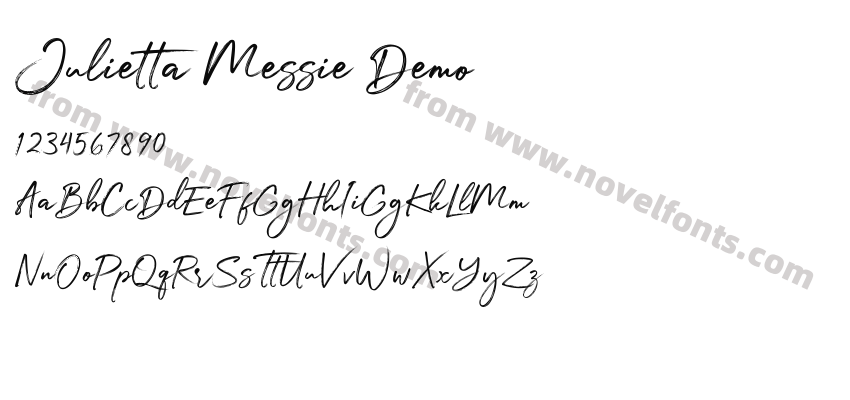 Julietta Messie Demo
1234567890
AaBbCcDdEeFfGgHhIiGgKkLlMm
NnOoPpQqRrSsTtUuVvWwXxYyZz
from www.novelfonts.com
from www.novelfonts.com